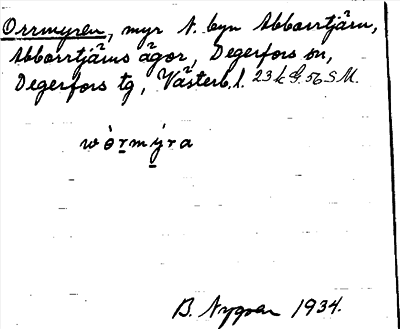 Orrmyren, myr N. byn Abborrtjärn,
Abborrtjärns ägor, Degerfors sn,
Degerfors tg, Västerb. l. 23 k G. 56 S M.
wòrmýra
B. Nygren 1934.